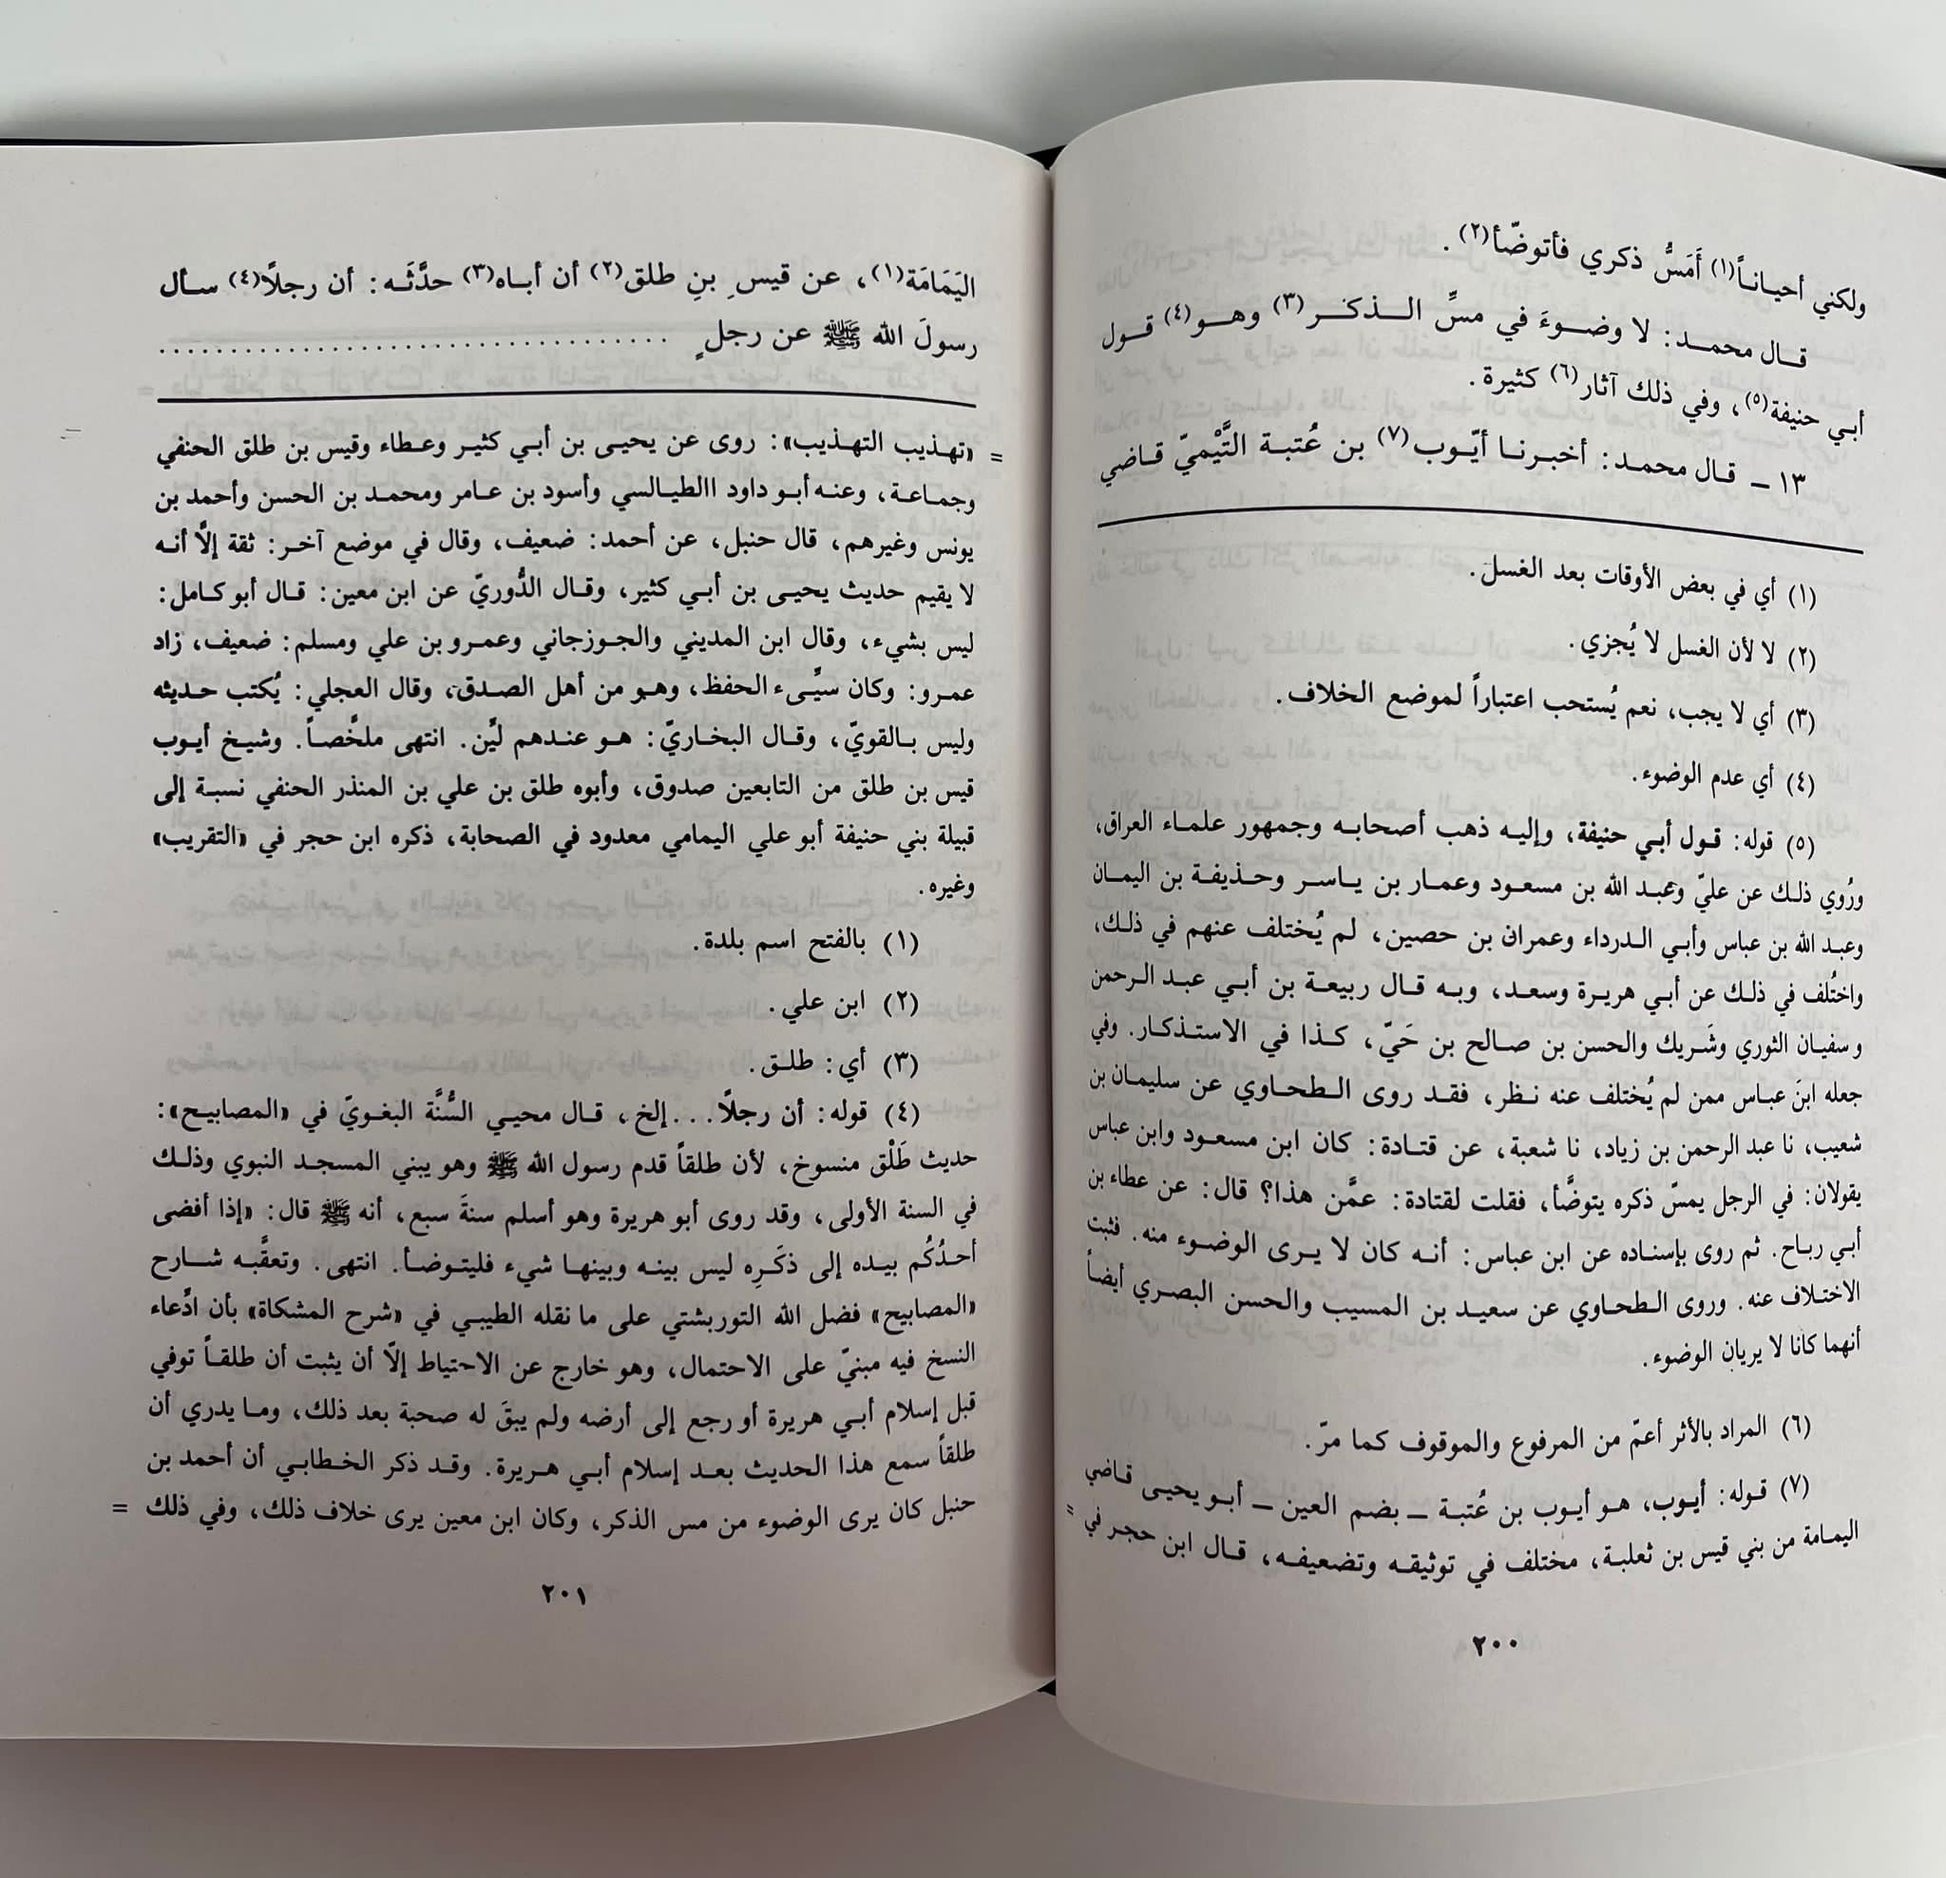 ولكني أحيـانـاً(١) أَمَسُّ ذكري فأتوضّأ(٢) .
قـال محمـد: لا وضـوءَ في مسِّ الـذكـر(٣) وهـو(٤) قـول
أبـي حنيفة(٥)، وفي ذلك آثار(٦) كثيرة.
١٣ ــ قـال محمـد: أخبـرنـا أيّـوب(٧) بن عُتبـة التَّيْميّ قـاضي
(١) أي في بعض الأوقات بعد الغسل.
(٢) لا لأن الغسل لا يُجزي.
(٣) أي لا يجب، نعم يُستحب اعتباراً لموضع الخلاف.
(٤) أي عدم الوضوء.
(٥) قوله: قـول أبـي حنيفة، وإليـه ذهب أصحابـه وجمهور علمـاء العراق،
ورُوي ذلـك عن عليّ وعبـد الله بن مسعـود وعمـار بن يـاسـر وحـذيفـة بن اليمـان
وعبـد الله بن عباس وأبـي الـدرداء وعمران بن حصين، لم يُختلف عنهم في ذلـك،
واختُلف في ذلـك عن أبـي هريـرة وسعـد، وبـه قـال ربيعـة بن أبـي عبـد الـرحمن
وسفيـان الثوري وشَـريك والحسن بن صـالح بن حَيّ، كـذا في الاستـذكـار. وفي
جعله ابنَ عبـاس ممن لم يُختلف عنه نـظر، فقـد روى الـطحـاوي عن سليمـان بن
شعيب، نا عبد الرحمن بن زياد، نـا شعبة، عن قتـادة: كـان ابن مسعـود وابن عباس
يقولان: في الرجل يمسّ ذكره يتوضَّأ، فقلت لقتادة: عمَّن هذا؟ قال: عن عطاء بن
أبـي ربـاح. ثم روى بإسناده عن ابن عباس: أنـه كان لا يـرى الوضـوء منه. فثبت
الاختـلاف عنه. وروى الـطحاوي عن سعيـد بن المسيب والحسن البصـري أيضـاً
أنهما كانا لا يريان الوضوء.
(٦) المراد بالأثر أعمّ من المرفوع والموقوف كما مرّ.
(٧) قـوله: أيـوب، هـو أيـوب بن عُتبـة ــ بضم العين ــ أبـو يحيـى قـاضي
اليمـامة من بني قيس بن ثعلبـة، مختلف في توثيقـه وتضعيفـه، قـال ابن حجـر في =
٢٠٠
اليَمَامَة(١)، عن قيسِ بنِ طلق(٢) أن أبـاه(٣) حدَّثَـه: أن رجلًا(٤) سـأل
رسولَ الله ﷺ عن رجلٍ ....................................
= «تهـذيب التهـذيب»: روى عن يحيـى بن أبـي كثير وعـطاء وقيس بن طلق الحنفي
وجمـاعـة، وعنـه أبـو داود االطيـالسي وأسـود بن عـامر ومحمـد بن الحسن وأحمـد بن
يونس وغيرهم، قال حنبل، عن أحمد: ضعيف، وقال في موضع آخـر: ثقة إلَّا أنـه
لا يقيم حديث يحيـى بن أبـي كثير، وقـال الدُّوريّ عن ابن معين: قـال أبو كـامل:
ليس بشيء، وقـال ابن المديني والجـوزجاني وعمـرو بن علي ومسلم: ضعيف، زاد
عمـرو: وكان سيِّىء الحفظ، وهـو من أهل الصدق، وقال العجلي: يُكتب حـديثه
وليس بـالقويّ، وقـال البخـاريّ: هـو عنـدهم ليِّن. انتهى ملخَّصـاً. وشيـخ أيـوب
قيس بن طلق من التابعين صدوق، وأبوه طلق بن علي بن المنذر الحنفي نسبـة إلى
قبيلة بني حنيفة أبو علي اليمامي معدود في الصحابة، ذكره ابن حجر في «التقريب»
وغيره.
(١) بالفتح اسم بلدة.
(٢) ابن علي.
(٣) أي: طلـق.
(٤) قوله: أن رجلًا... إلخ، قـال محيـي السُّنَّة البغـويّ في «المصابيـح»:
حديث طَلْق منسوخ، لأن طلقاً قدم رسول الله ﷺ وهو يبني المسجـد النبوي وذلـك
في السنة الأولى، وقد روى أبو هريرة وهو أسلم سنةَ سبع، أنه ﷺ قال: «إذا أفضى
أحدُكُم بيـده إلى ذكَـرِه ليس بينـه وبينهـا شيء فليتـوضـأ. انتهى. وتعقَّبـه شـارح
«المصابيح» فضل الله التوربشتي على ما نقله الطيبـي في «شرح المشكاة» بأن ادِّعاء
النسخ فيه مبنيّ على الاحتمال، وهو خارج عن الاحتياط إلّا أن يثبت أن طلقـاً توفي
قبل إسلام أبـي هريرة أو رجع إلى أرضه ولم يبقَ له صحبة بعد ذلك، ومـا يدري أن
طلقاً سمع هذا الحديث بعـد إسلام أبـي هـريرة. وقـد ذكر الخـطابـي أن أحمد بن
حنبل كان يرى الوضوء من مس الذكر، وكان ابن معين يرى خلاف ذلك، وفي ذلك =
٢٠١